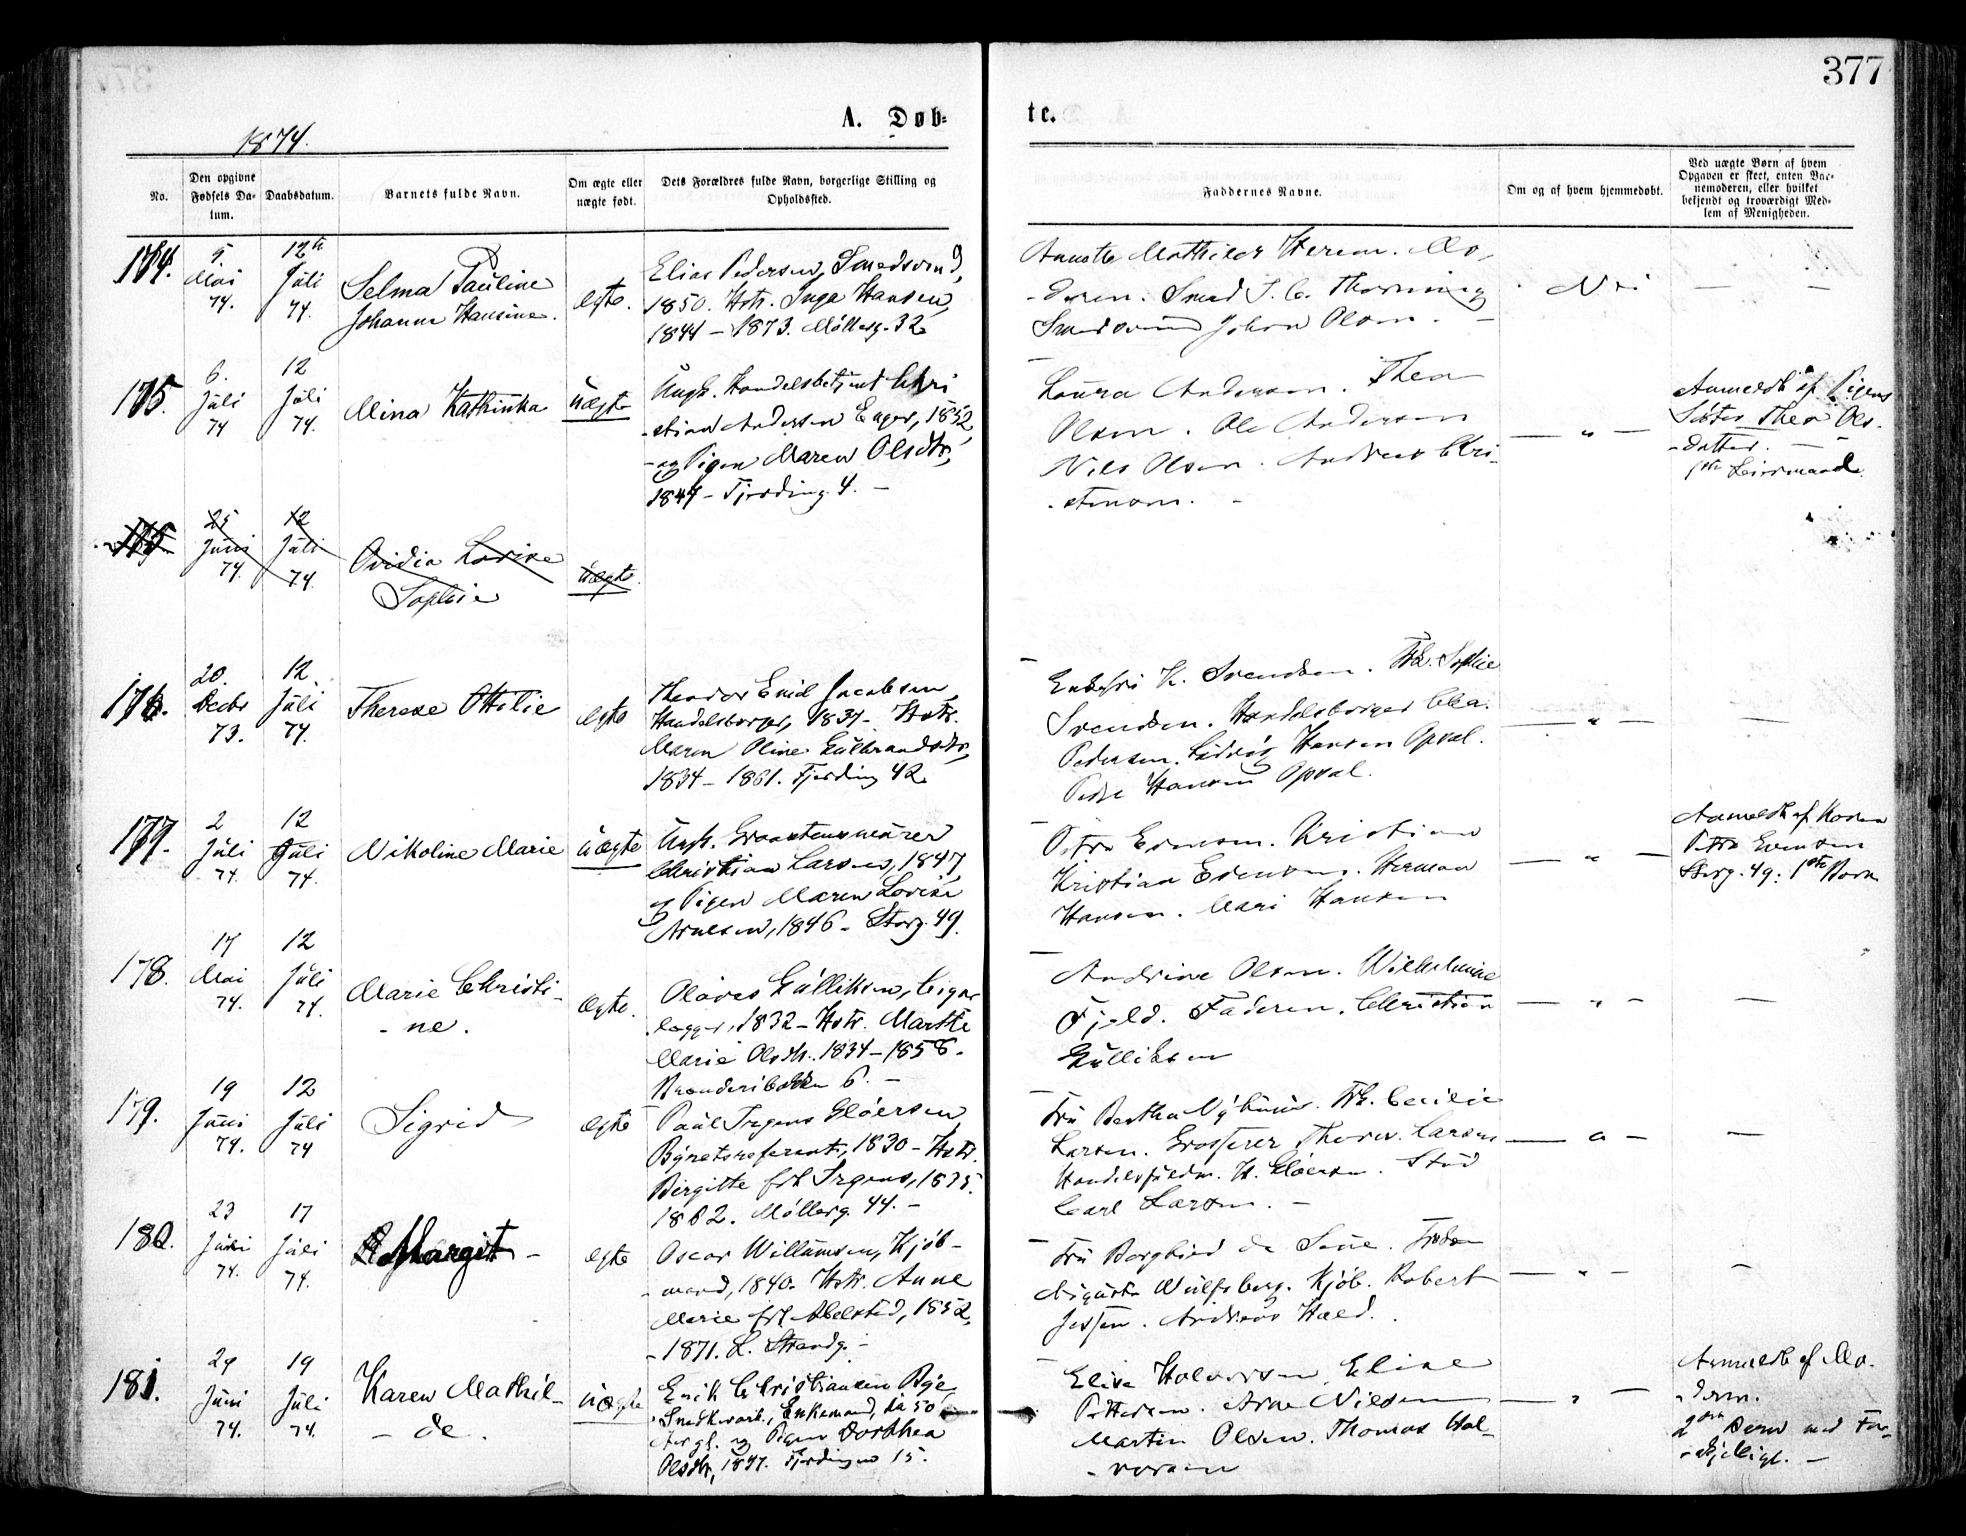 377
A. Døb-
te.
1874.
No.
Den opgivne
Fødsels Da-
tum.
Daabsdatum.
Barnets fulde Navn.
Om ægte eller
uægte født.
Dets Forældres fulde Navn, borgerlige Stilling og
Opholdssted.
Faddernes Navne.
Om og af hvem hjemmedøbt.
Ved uægte Børn af hvem
Opgaven er skeet, enten Bar-
nemoderen, eller hvilket
bekjendt og troværdigt Med-
lem af Menigheden.
174.
5.
Mai
74.
12te
Juli
74.
Selma Pauline
Johanne Hansine.
ægte.
Elias Pedersen, Smedsvend,
1850. Hstr. Inga Hansen,
1844 – 1873. Møllerg. 32
Annette Mathilde Mo-
-deren. Smed J. C. Thorning
Smedsvend Johan Olsen. –
Nei
175.
6.
Juli
74
12
Juli
74.
Mina Kathinka
uægte
Ungk. Handelsbetjent Chri
-stian Andersen Enger, 1852,
- og Pigen Maren Olsdtr,
1847 – Fjerding. 4. –
Laura Andersen. Thea
Olsen. Ole Andersen
Nils Olsen. Andreas Chri-
-stensen. –
— " —
Anmeldt af Pigens
Søster Thea Ols-
-datter. —
1ste Leiermaal
175
25
Juni
74.
12
Juli
74.
Ovidia Lovise
Sophie
uægte.
176.
20.
Decbr
73.
12
Juli
74.
Therese Ottilie
ægte
Theodor Emil Jacobsen,
Handelsborger, 1837 – Hstr.
Maren Oline Gulbrandsdtr,
1834 – 1861. Fjerding 42
Enkefru K. Svendsen. Frk. Sophie
Svendsen. Handelsborger Chr.
Pedersen. Ludvig Hansen Opsal.
Peder Hansen Opsal.
— " —
177.
2
Juli
74.
12
Juli
74.
Nikoline Marie
uægte
Ungk. Graastensmurer
Christian Larsen, 1847,
og Pigen Maren Lovise
Arnesen, 1846 – Storg. 49.
Petra Evensen. Kristian
Kristian Evensen. Herman
Hansen. Mari Hansen
— " —
Anmeldt af Konen
Petra Evensen
Storg. 49. 1ste Barn
178.
17
Mai
74.
12
Juli
74.
Marie Christi-
- ne.
ægte.
Olaves Gulliksen, Cigar
lægger, 1832 – Hstr. Marthe
Marie Olsdtr. 1834 – 1858.
6. –
Andrine Olsen. Wilhelmine
Fjeld. Faderen. Christian
Gulliksen
— " —
179.
19
Juni
74.
12
Juli
74
Sigrid
ægte
Paul Irgens Gløersen
Byretsreferent, 1830 – Hstr.
Birgitte fdt Irgens, 1835.
1862. Møllerg. 44. –
Fru Bertha Frk. Cecilie
Larsen. Grosserer Thorv. Larsen
Handelsfuldm. H. Gløersen. Stud
Carl Larsen. –
— " —
180.
23
Juni
74.
17
Juli
74.
Margit –
ægte
Oscar Willumsen, Kjøb-
- mand, 1840. Hstr. Anne
Marie fdt Abelsted, 1852,
- 1871. L. Strandg. –
Fru Borghild de Seue. Frøken
Augusta Wulfsberg. Kjøb. Robert
Jessen. Andreas Hald.
— " —
181.
29
Juni
74.
19
Juli
74.
Karen Mathil-
- de.
uægte
Erik Christiansen Bye,
Snedkerarb., Enkemand, da 50
Aar gl. og Pigen Dorthea
Olsdtr, 1847. Fjerdingen 15.
Elise Halvorsen, Eline
Pettersen. Arne Nilsen
Martin Olsen. Thomas Hal-
- vorsen
— " —
Anmeldt af Mo-
-deren.
2det Barn med For-
-skjellige. –